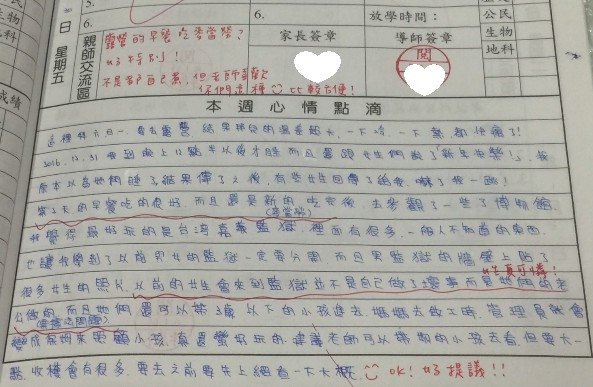 5.
6.
6.
放學時間：
公民
生物
地科
生物
地科
日
星期五
親師交流區
家長簽章
導師簽章
閱
露營的早餐吃麥當勞？
好特別！
不是都自己煮，但老師喜歡
你們這種 比較方便！
成績
本週心情點滴
這禮拜六日一，要去露營 結果那兒的溫差超大，一下冷，一下熱，都快瘋了！
2016.12.31 要到晚上12點半以後才睡 而且還跟女生們說了「新年快樂！」，我
原本以為她們睡了 結果傳了之後，有些女生回傳了給我 嚇了我一跳！
第2天的早餐吃的很好，而且還是新的 吃完後，去參觀了一些了博物館
(麥當勞)
我覺得最好玩的是台灣嘉義監獄，裡面有很多，一般人不知道的東西
也讓我學到了以前男女的監獄一定要分開，而且男監獄的牆壁上貼了
女生真可憐！
很多女生的照片，以前的女生會來到監獄並不是自己做了壞事而是她們的老
公做的，而且她們還可以帶3歲以下的小孩進去，媽媽去做工時，管理員就會
變成保姆來照顧小孩，真還蠻好玩的，建議老師可以帶您的小孩去看 但要大一
點 收穫會有很多，要去之前要先上網查一下大概
OK！好提議！！